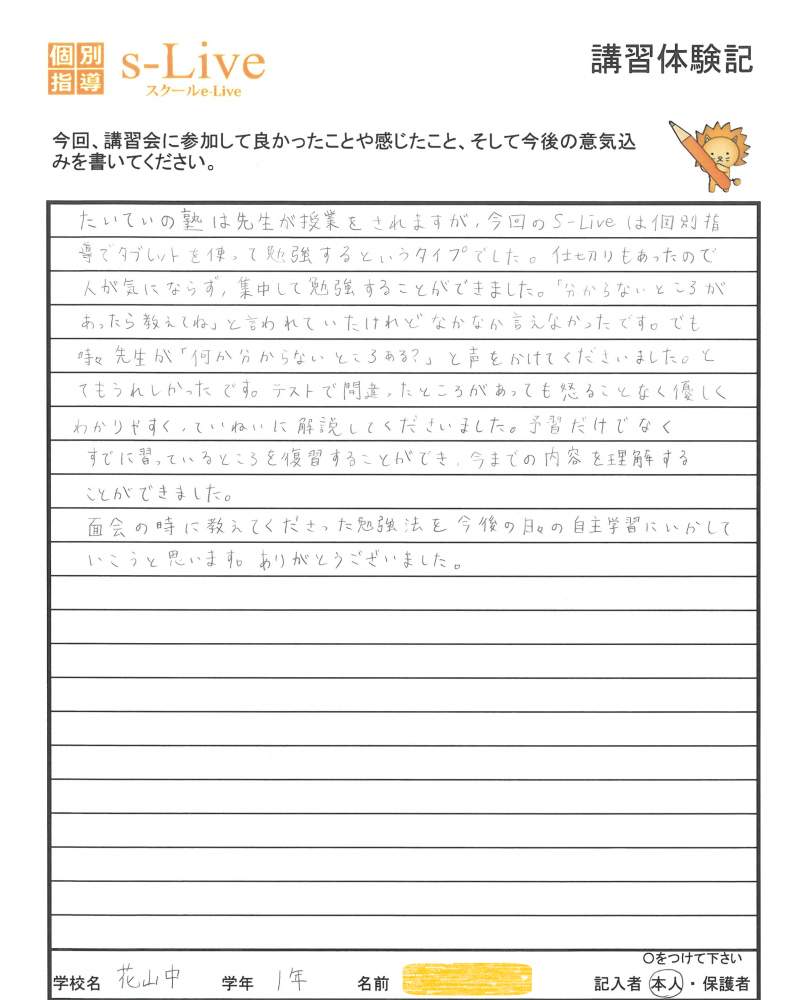 個別
指導
s-Live
スクールe-Live
講習体験記
今回、講習会に参加して良かったことや感じたこと、そして今後の意気込
みを書いてください。
たいていの塾は先生が授業をされますが、今回のS-Liveは個別指
導でタブレットを使って勉強するというタイプでした。仕切りもあったので
人が気にならず、集中して勉強することができました。「分からないところが
あったら教えてね」と言われていたけれどなかなか言えなかったです。でも
時々先生が「何か分からないところある?」と声をかけてくださいました。と
てもうれしかったです。テストで間違ったところがあっても怒ることなく優しく
わかりやすく、ていねいに解説してくださいました。予習だけでなく
すでに習っているところを復習することができ、今までの内容を理解する
ことができました。
面会の時に教えてくださった勉強法を今後の日々の自主学習にいかして
いこうと思います。ありがとうございました。
〇をつけて下さい
学校名 花山中 学年 1年 名前 記入者 本人・保護者